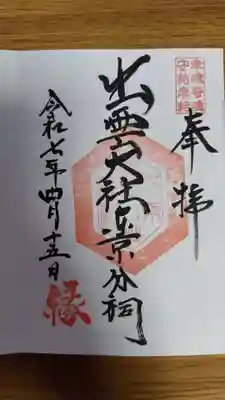 奉拝
出雲大社東京分祠
令和七年四月十五日
縁